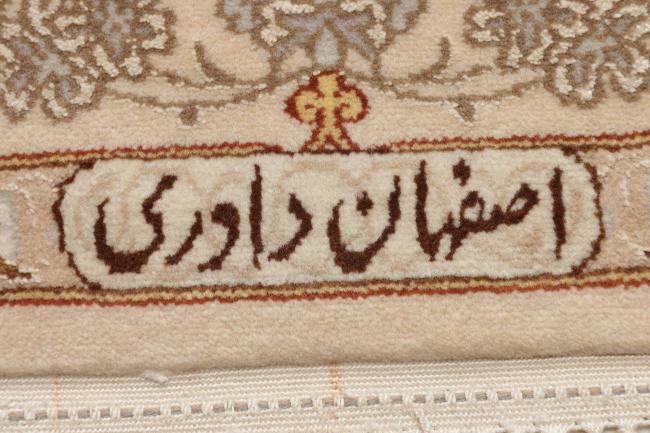 اصفهان داوری